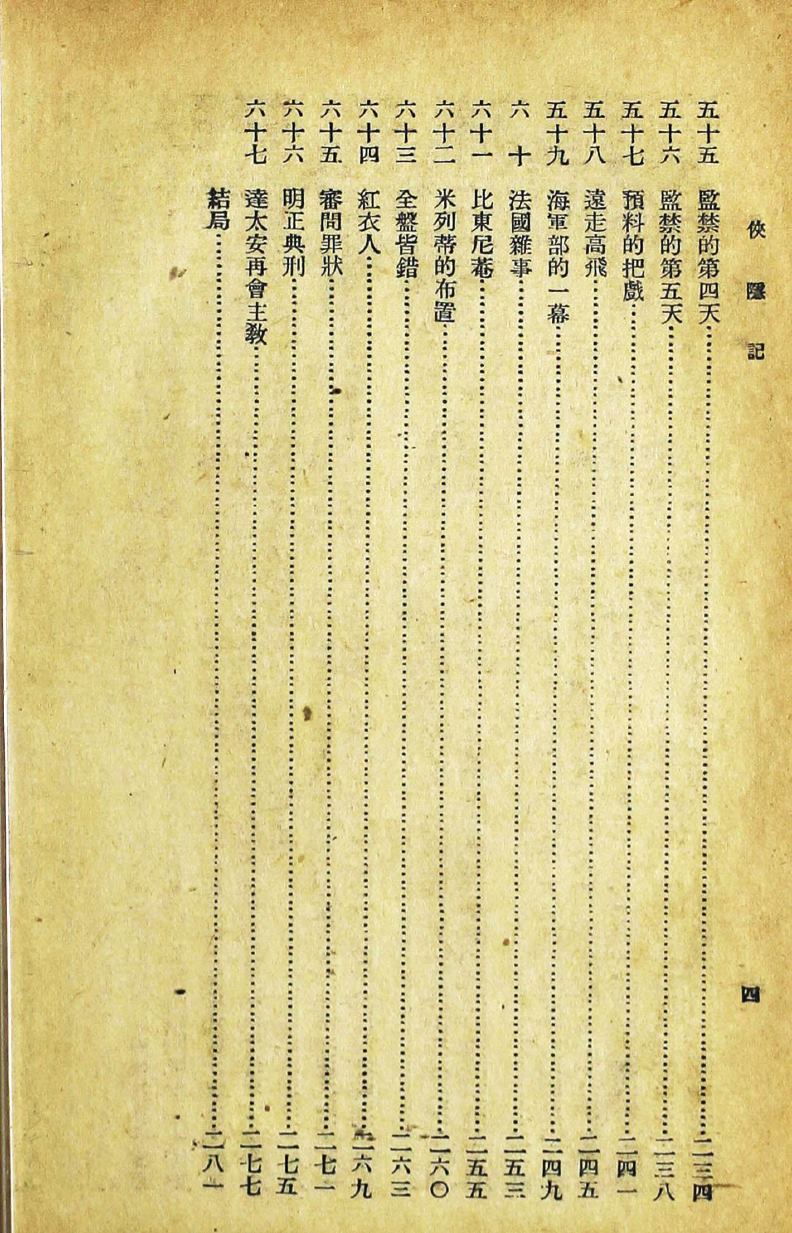 俠隱記
四
五十五 監禁的第四天……二三四
五十六 監禁的第五天……二三八
五十七 預料的把戲……二四一
五十八 遠走高飛……二四五
五十九 海軍部的一幕……二四九
六十 法國雜事……二五三
六十一 比東尼菴……二五五
六十二 米列蒂的布置……二六〇
六十三 全盤皆錯……二六三
六十四 紅衣人……二六九
六十五 審問罪狀……二七一
六十六 明正典刑……二七五
六十七 達太安再會主教……二七七
結局……二八一